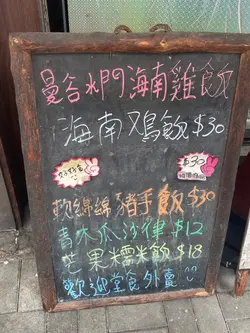 曼谷水門海南雞飯
海南鸡飯 $30
好好食
$30
軟綿綿豬手飯 $30
青木瓜沙律 $12
芒果糯米飯 $18
歡迎堂食外賣